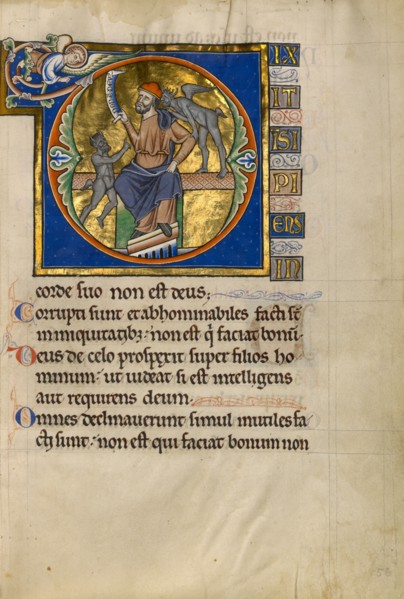 D
IX
IT
ISI
PI
ENS
IN
corde suo non est deus;
Corrupti sunt et abhominabiles facti sē
in iniquitatibꝫ: non est q̇ faciat bonū.
Deus de celo prospexit super filios ho
minum: ut uideat si est intelligens
aut requirens deum.
Omnes declinauerunt simul inutiles fa
cti sunt: non est qui faciat bonum non
56